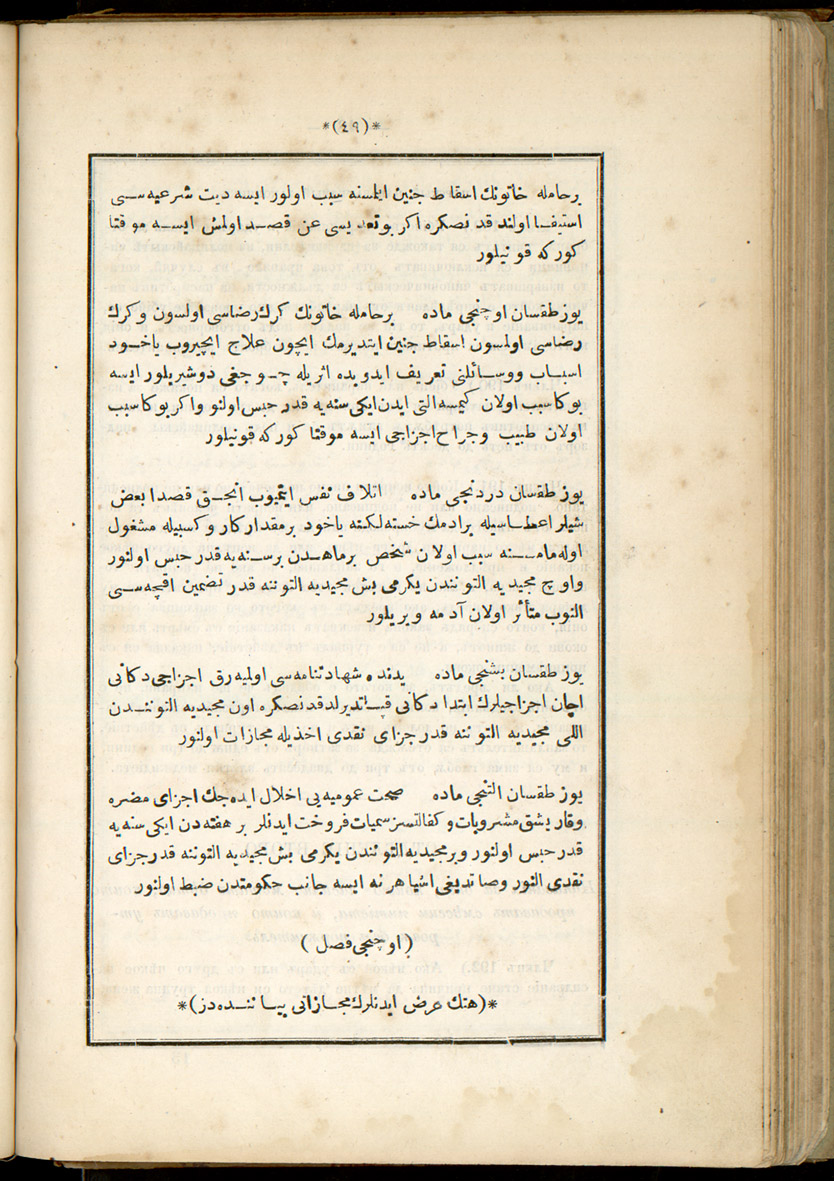 *(٤٩)*
برحامله خاتونك اسقاط جنین ایلمسنه سبب اولور ایسه دیت شرعیه سی
استیفا اولندقدنصکره اکر بوتعدیسی عن قصد اولمش ایسه موقتا
کورکه قونیلور
یوز طقسان اوچنجی ماده برحامله خاتونك کرك رضاسی اولسون وکرك
رضاسی اولمسون اسقاط جنین ایتدیرمك ایچون علاج ایچیروب یاخود
اسباب ووسائلنی تعریف ایدوبده اثریله چوجغی دوشیریلور ایسه
بوکا سبب اولان کیمسه التی ایدن ایکی سنه یه قدر حبس اولنو واکر بوکا سبب
اولان طبیب وجراح اجزاجی ایسه موقتا کورکه قونیلور
یوز طقسان دردنجی ماده اتلاف نفس ایتمیوب انجق قصدا بعض
شیلر اعطاسیله برادمك خسته لکنه یاخود برمقدار کار وکسبیله مشغول
اوله مامسنه سبب اولان شخص برماهدن برسنه یه قدر حبس اولنور
واوچ مجیدیه التونندن یکرمی بش مجیدیه التوننه قدر تضمین اقچه سی
النوب متأثر اولان آدمه ویریلور
یوز طقسان بشنجی ماده یدنده شهادتنامه سی اولمیه رق اجزاجی دکانی
اچان اجزاجیلرك ابتدا دکانی قپاتدیرلدقدنصکره اون مجیدیه التونندن
اللی مجیدیه التوننه قدر جزای نقدی اخذیله مجازات اولنور
یوز طقسان التنجی ماده صحت عمومیه یی اخلال ایده جك اجزای مضره
وقاریشق مشروبات وکفالتسز سمیات فروخت ایدنلر بر هفته دن ایکی سنه یه
قدر حبس اولنور وبرمجیدیه التونندن یکرمی بش مجیدیه التوننه قدر جزای
نقدی النور وصاتدیغی اشیا هر نه ایسه جانب حکومتدن ضبط اولنور
(اوچنجی فصل)
*(هتك عرض ایدنلرك مجازاتی بیاننده در)*